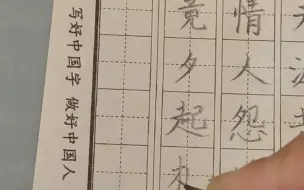 情人怨
竟夕起
写好中国字 做好中国人